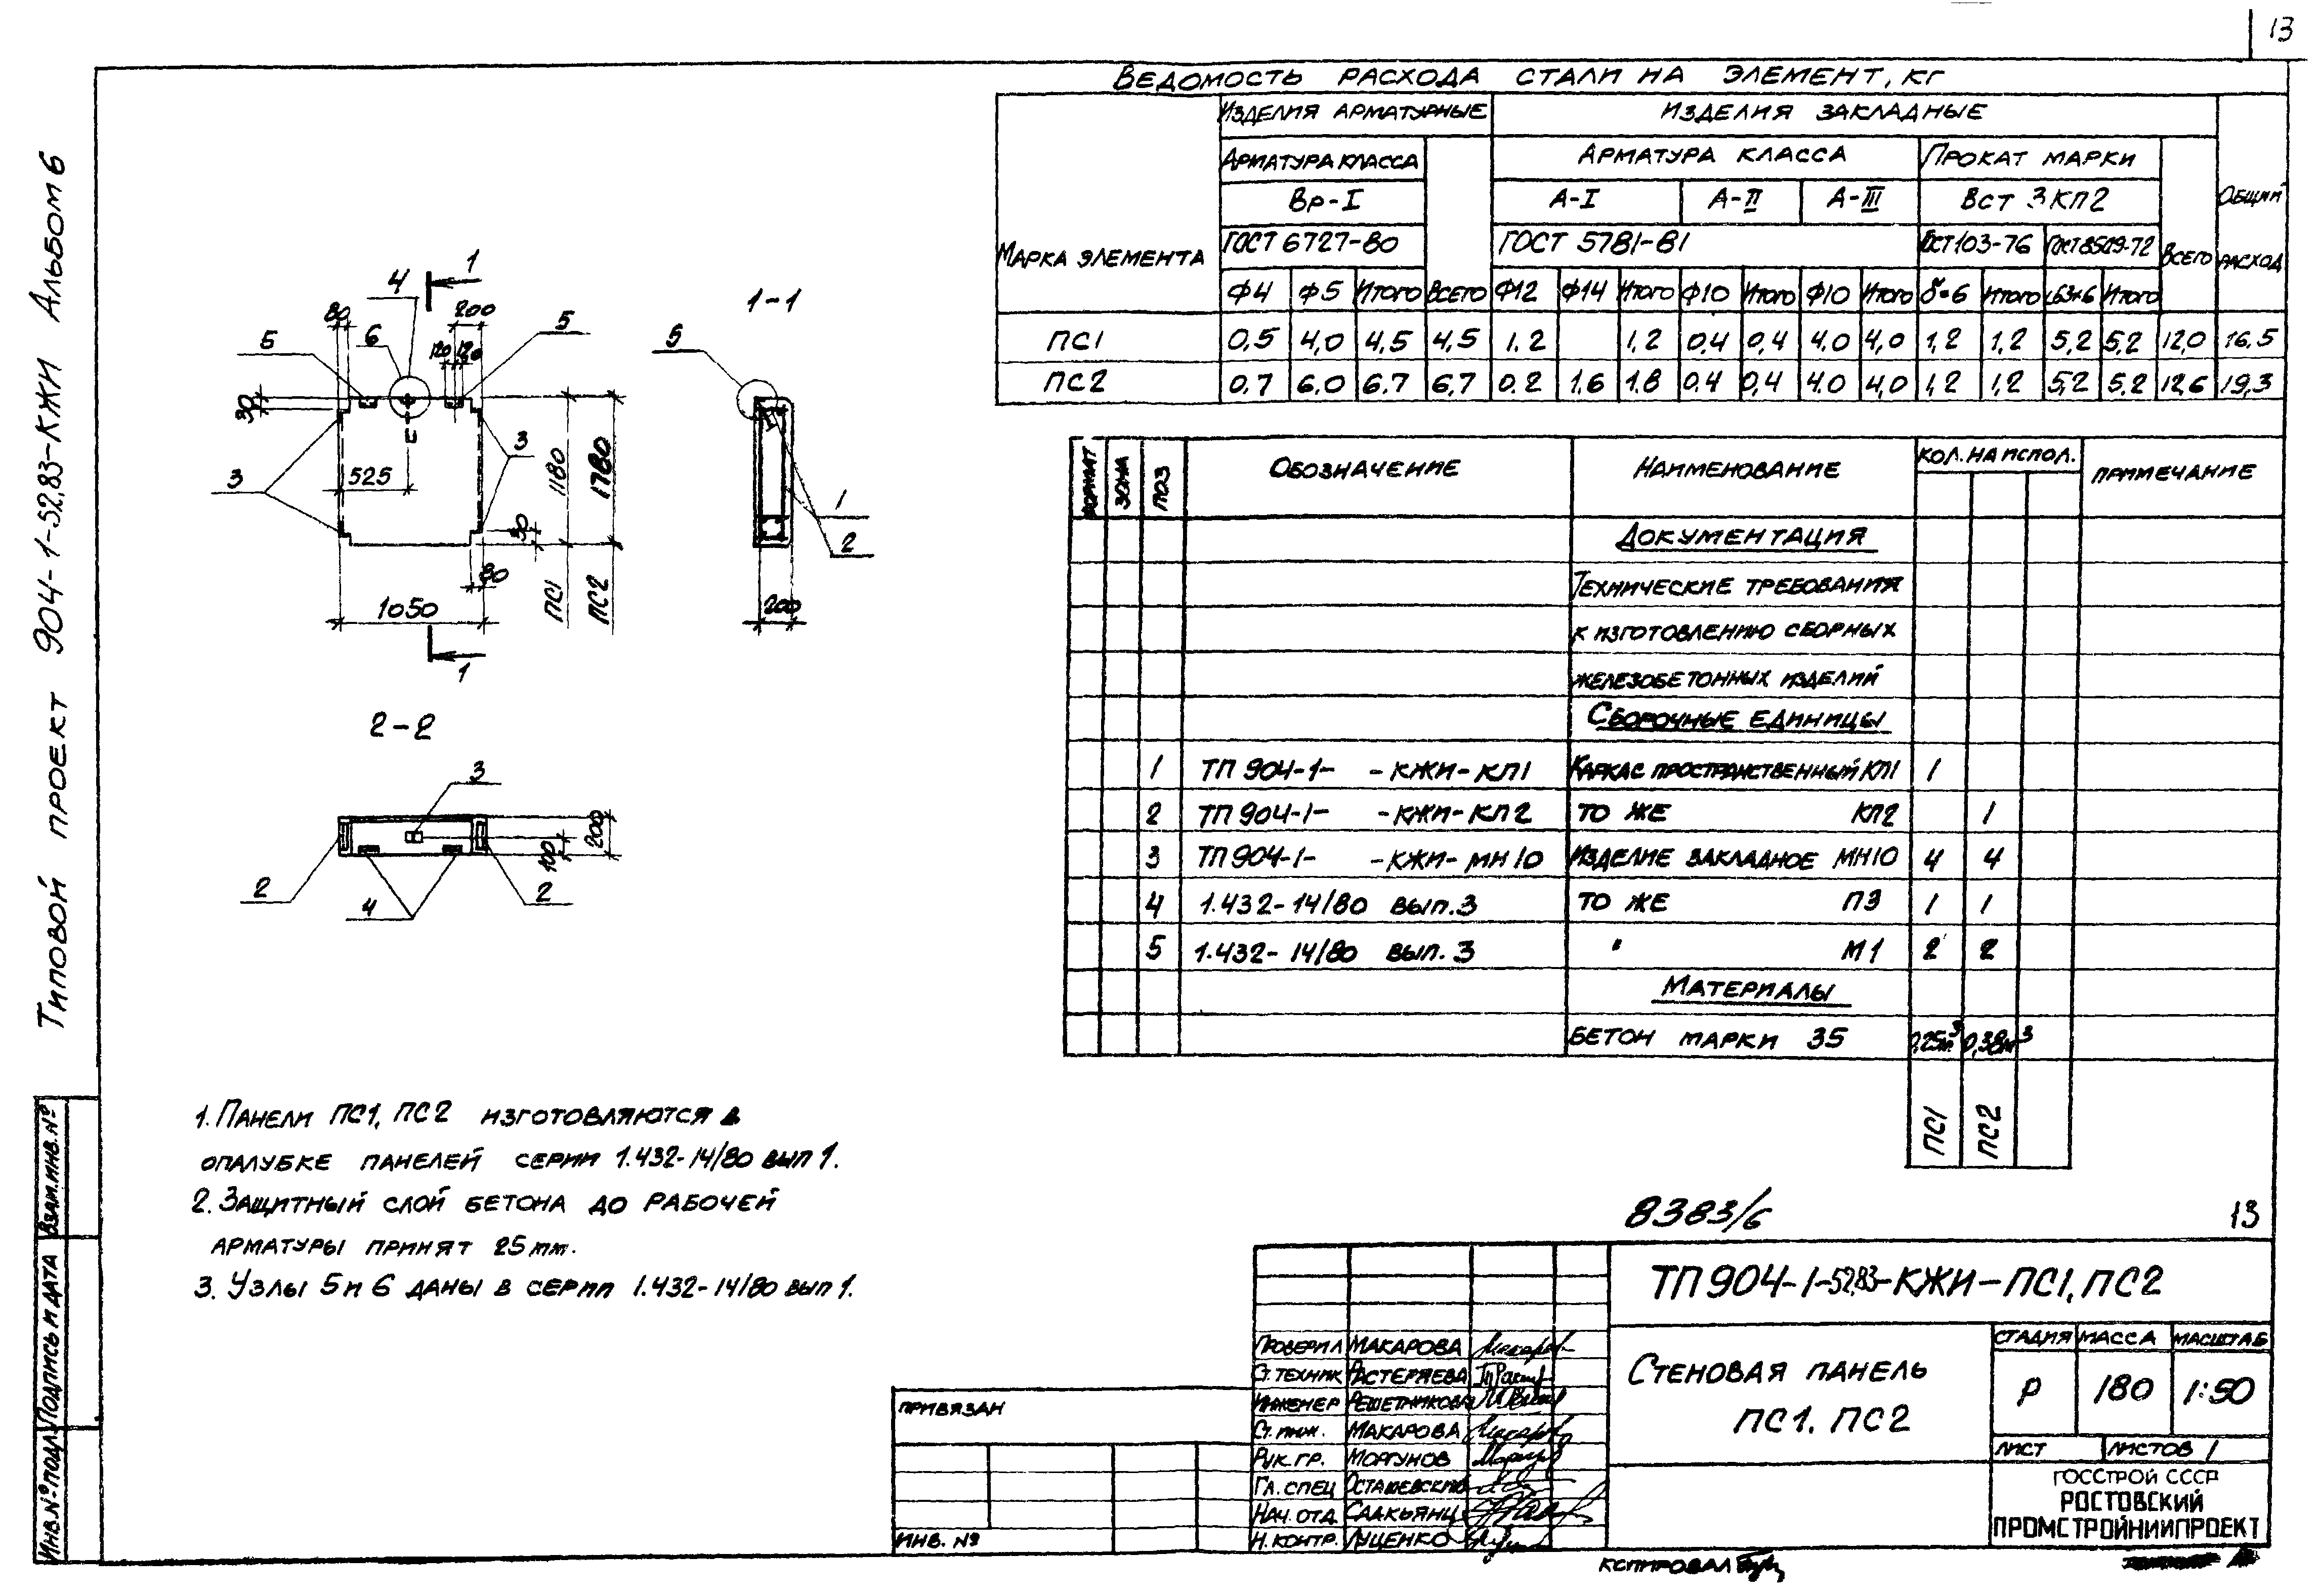 13
Типовой проект 904-1-52.83-КЖИ Альбом 6
Ведомость расхода стали на элемент, кг
Марка элемента
Изделия арматурные
Изделия закладные
Общий расход
Арматура класса
Всего
Арматура класса
Прокат марки
Всего
Вр-I
А-I
А-II
А-III
Вст 3кп2
ГОСТ 6727-80
ГОСТ 5781-81
ГОСТ 103-76
ГОСТ 8509-72
Ф4 Ф5 Итого Всего Ф12 Ф14 Итого Ф10 Итого Ф10 Итого δ=6 Итого L63×6 Итого
ПС1 0,5 4,0 4,5 4,5 1.2 1,2 0,4 0,4 4,0 4,0 1,2 1,2 5,2 5,2 12,0 16,5
ПС2 0.7 6.0 6.7 6,7 0.2 1,6 1.8 0,4 0,4 4.0 4,0 1,2 1,2 5,2 5.2 12,6 19,3
1
4
80
200
5
6
120
120
5
30
3
525
3
1180
1780
30
80
1050
ПС1
ПС2
1
1-1
5
1
2
200
2-2
3
200
100
2
4
2
Формат
Зона
Поз
Обозначение
Наименование
Кол. на испол.
Примечание
Документация
Технические требования
к изготовлению сборных
железобетонных изделий
Сборочные единицы
1 ТП 904-1- -КЖИ-КП1 Каркас пространственный КП1 1
2 ТП 904-1- -КЖИ-КП2 То же КП2 1
3 ТП 904-1- -КЖИ-МН10 Изделие закладное МН10 4 4
4 1.432-14/80 вып.3 То же П3 1 1
5 1.432-14/80 вып.3 " М1 2 2
Материалы
Бетон марки 35 0,25м³ 0,38м³
ПС1
ПС2
1. Панели ПС1, ПС2 изготовляются в
опалубке панелей серии 1.432-14/80 вып 1.
2. Защитный слой бетона до рабочей
арматуры принят 25мм.
3. Узлы 5 и 6 даны в серии 1.432-14/80 вып 1.
8383/6
13
ТП 904-1-52.83-КЖИ-ПС1, ПС2
Стеновая панель
ПС1. ПС2
Стадия Масса Масштаб
Р 180 1:50
Лист Листов 1
ГОССТРОЙ СССР
РОСТОВСКИЙ
ПРОМСТРОЙНИИПРОЕКТ
Проверил Макарова
Ст. техник Растеряева
Инженер Решетникова
Ст. инж. Макарова
Рук. гр. Моргунов
Гл. спец
Нач. отд. Саакьянц
Н. контр. Луценко
Привязан
Инв. №
Взам. инв. №
Подпись и дата
Инв. № подл.
Копировал